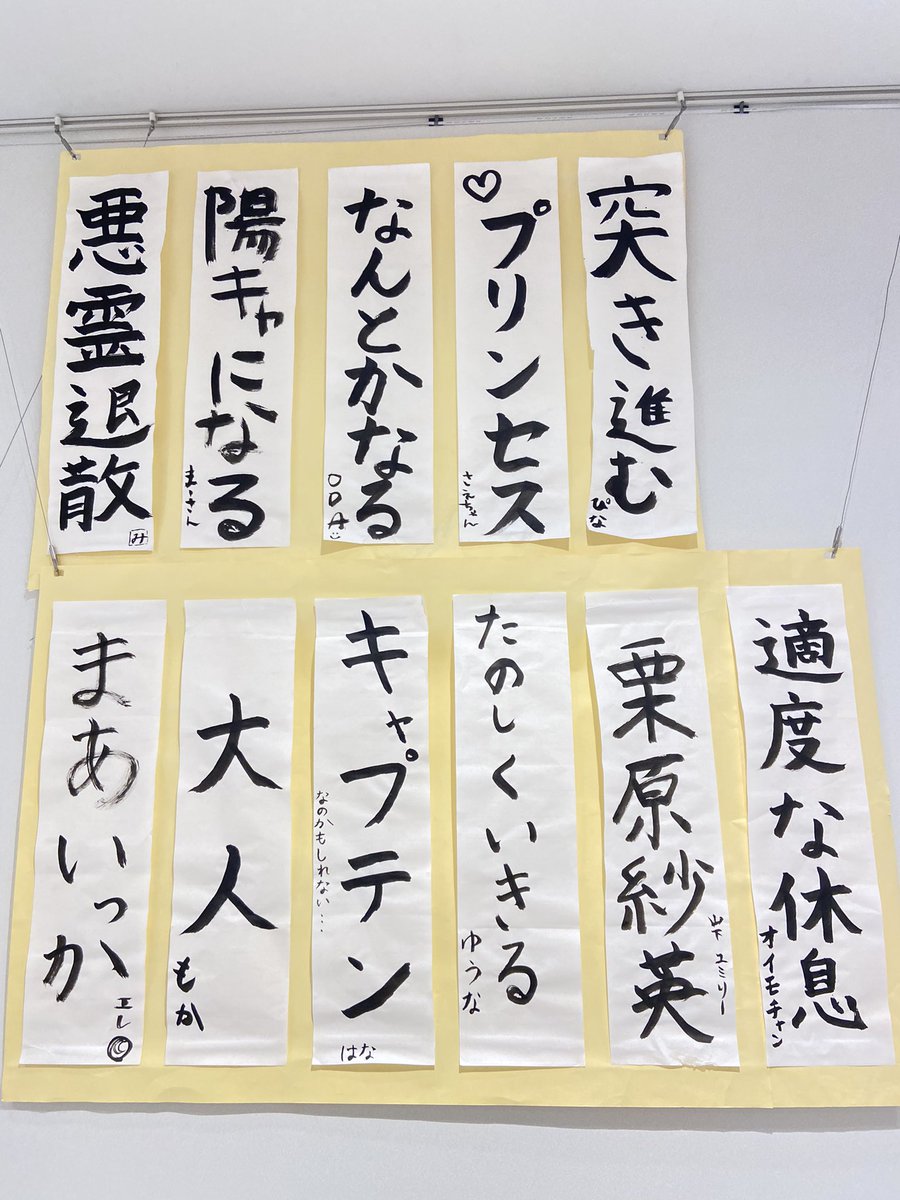 突き進む
ぴな
♡プリンセス
さえちゃん
なんとかなる
ODA
陽キャになる
まーさん
悪霊退散
み
適度な休息
オイモチャン
栗原紗英
山下ユミリー
たのしくいきる
ゆうな
キャプテン
なのかもしれない…
はな
大人
もか
まあいっか